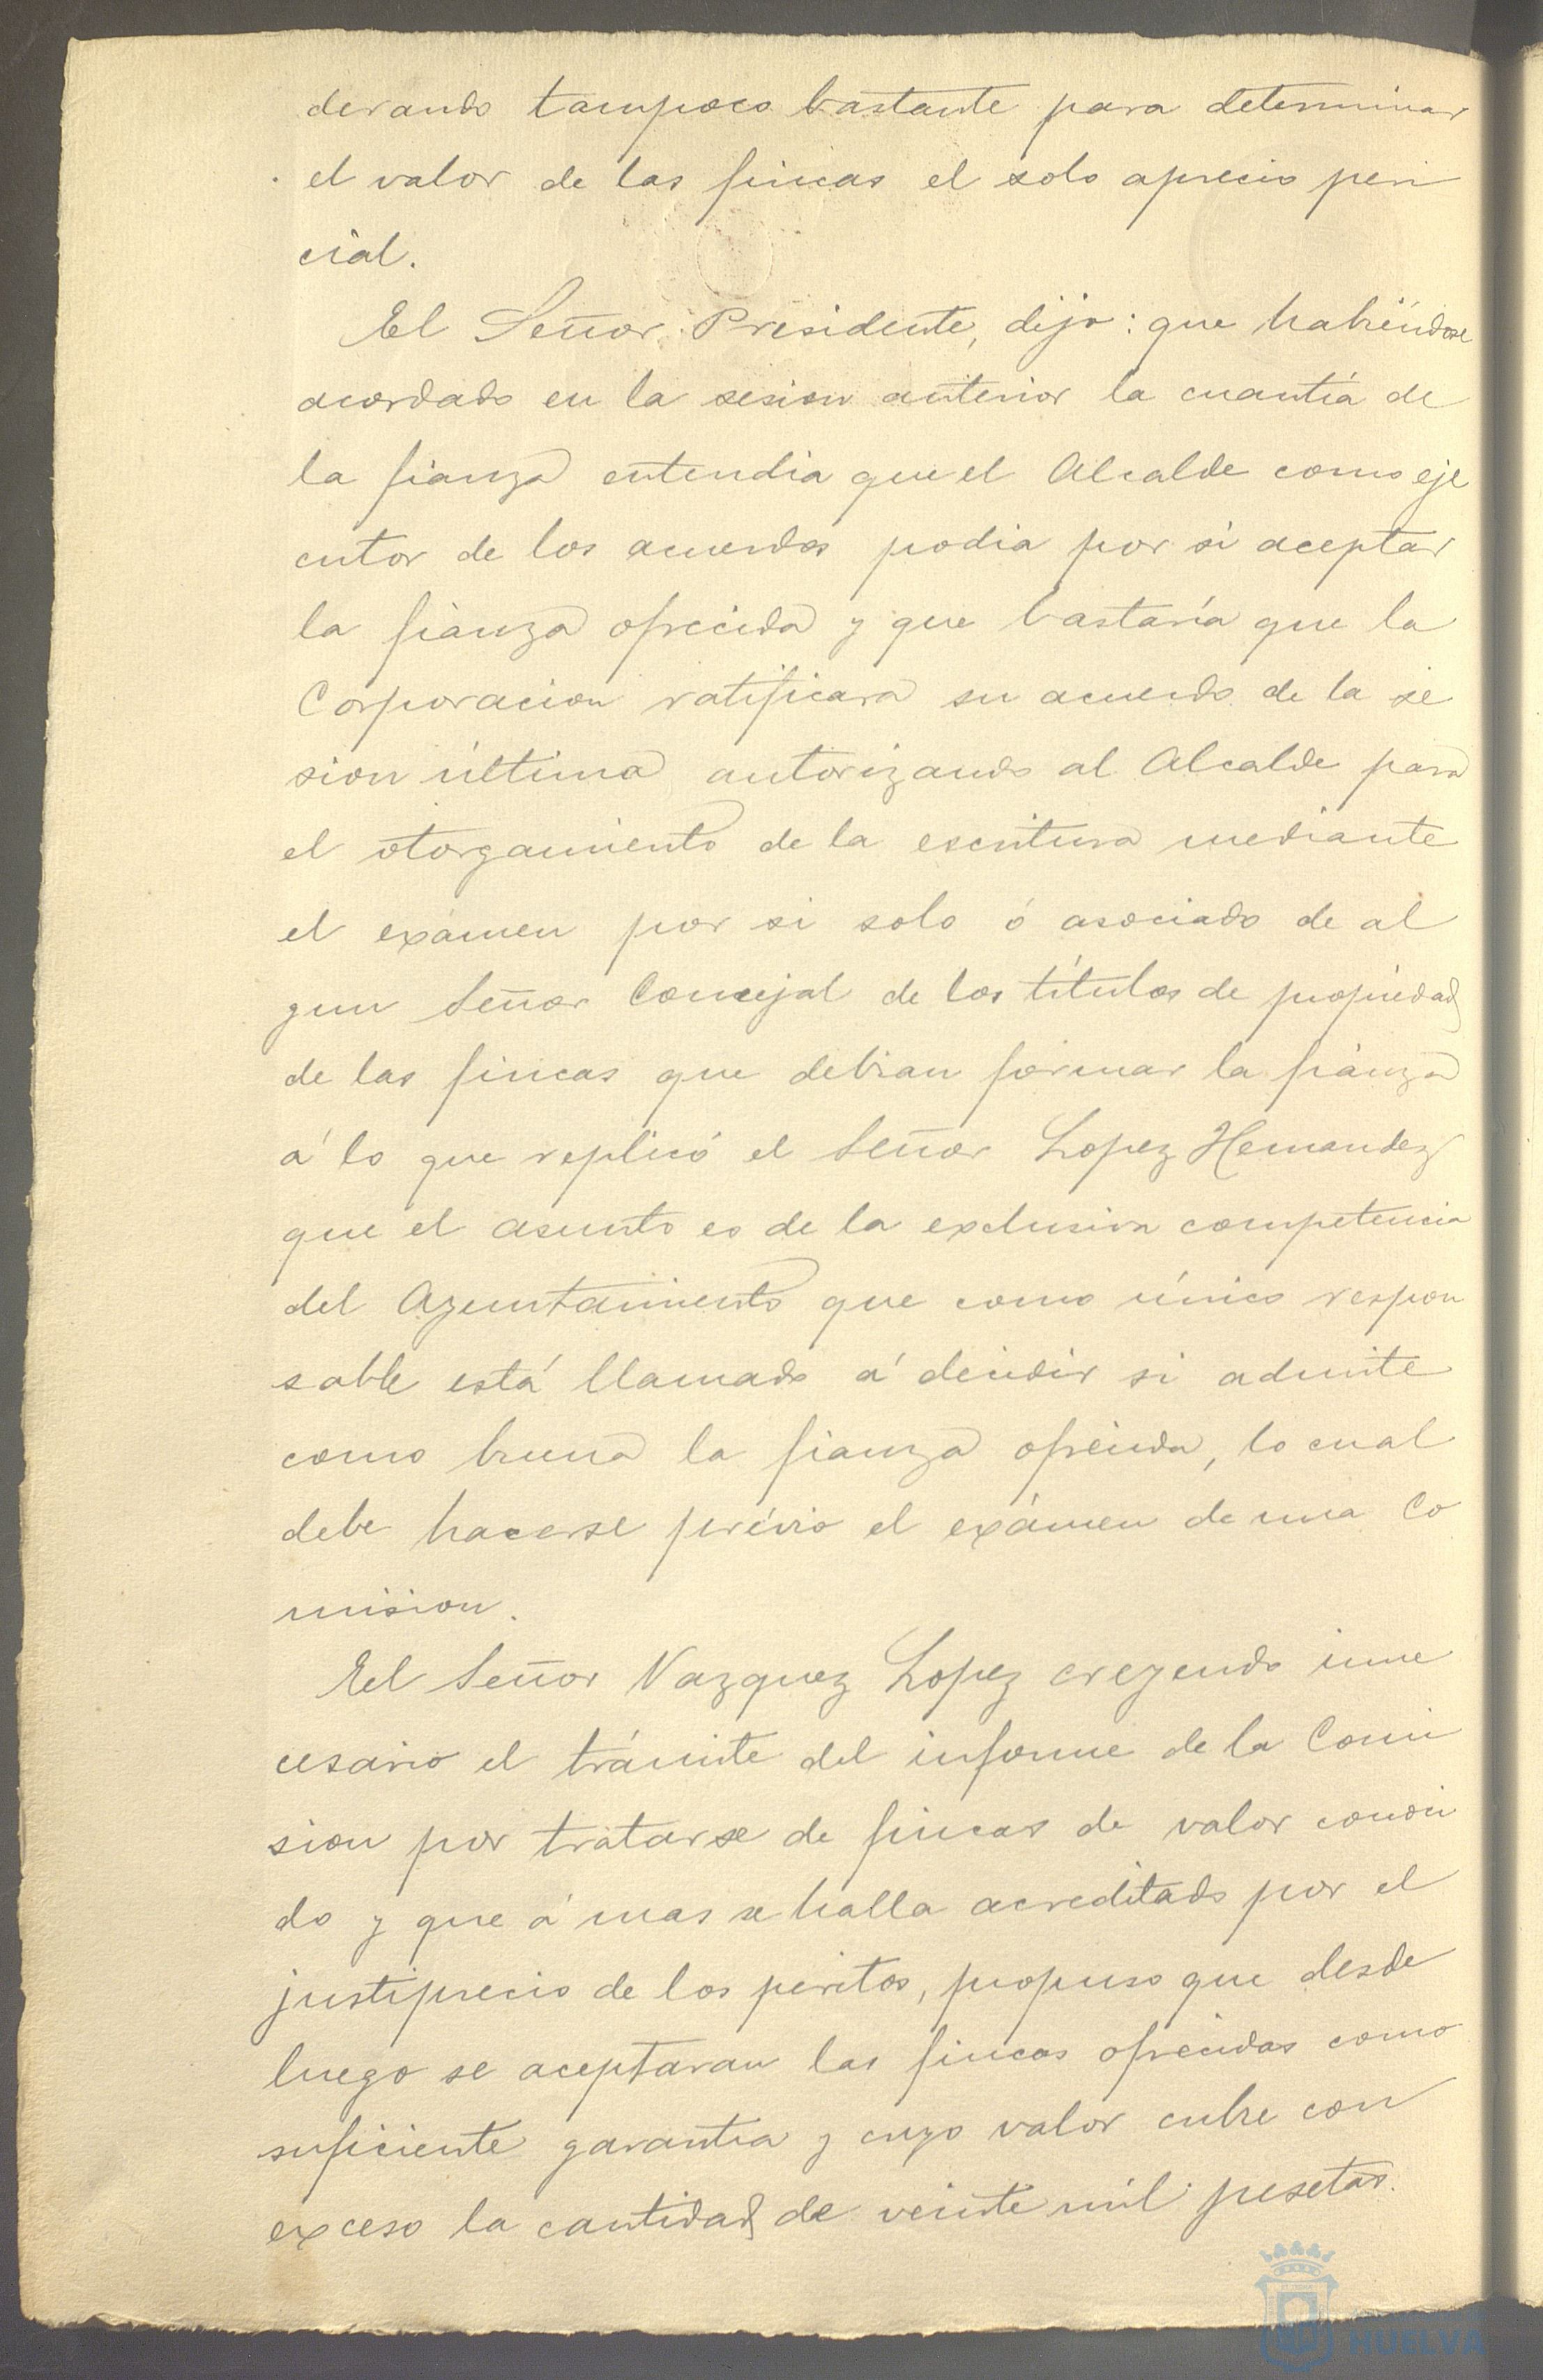 derando tampoco bastante para determinar
el valor de las fincas el solo aprecio peri
cial.
El Señor Presidente, dijo: que habiéndose
acordado en la sesion anterior la cuantía de
la fianza entendia que el Alcalde como eje
cutor de los acuerdos podia por si aceptar
la fianza ofrecida y que bastaría que la
Corporacion ratificara su acuerdo de la se
sion última autorizando al Alcalde para
el otorgamiento de la escritura mediante
el exámen por si solo ó asociado de al
gun Señor Concejal de los títulos de propiedad
de las fincas que debian formar la fianza
á lo que replicó el Señor Lopez Hernandez
que el asunto es de la exclusiva competencia
del Ayuntamiento que como único respon
sable está llamado á decidir si admite
como buena la fianza ofrecida, lo cual
debe hacerse prévio el exámen de una Co
mision.
El Señor Vazquez Lopez creyendo inne
cesario el trámite del informe de la Comi
sion por tratarse de fincas de valor conoci
do y que á mas se halla acreditado por el
justiprecio de los peritos, propuso que desde
luego se aceptaran las fincas ofrecidas como
suficiente garantia y cuyo valor cubre con
exceso la cantidad de veinte mil pesetas.
HUELVA